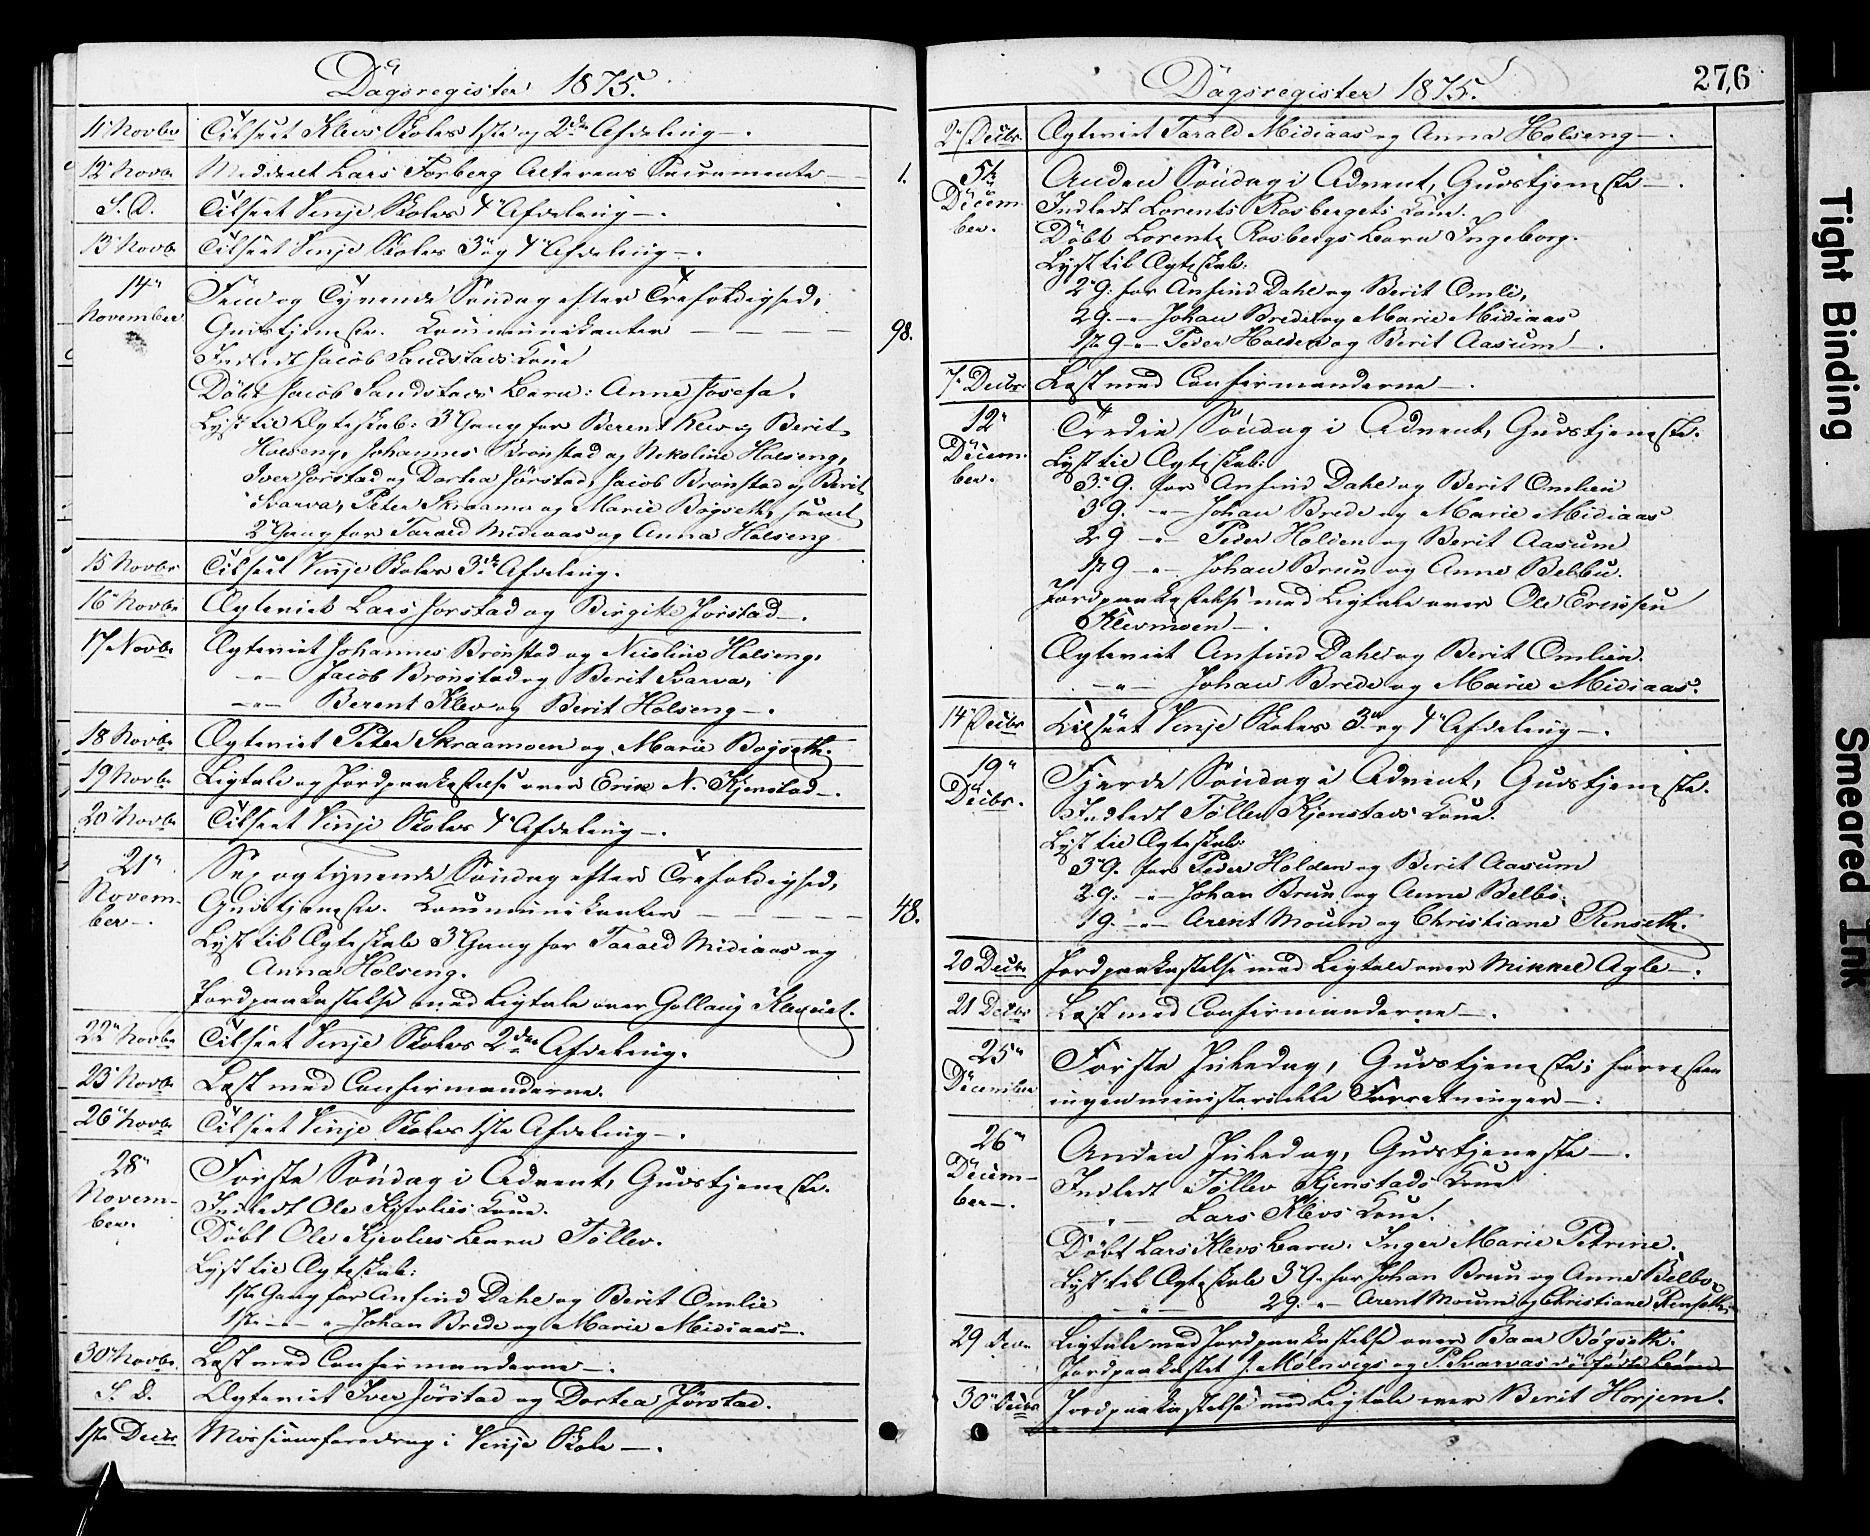 Dagsregister 1875.
11" Novbr Tilseet Klevs Skoles 1ste og 2den Afdeling —.
12" Novbr Meddeelt Lars Forberg Alterens Sacramente — 1.
S. D. Tilseet Vinje Skoles 4" Afdeling —.
13" Novbr Tilseet Vinje Skoles 3" og 4" Afdeling —.
14" November Fem og Tyvende Søndag efter Trefoldighed,
Gudstjeneste. Kommunikanter — — — 98.
Indledt Jacob Sandstads Kone
Døbt Jacob Sandstads Barn: Anne Josefa.
Lyst til Ægteskab: 3" Gang for Berent Klev og Berit
Holseng, Johannes Brønstad og Nekoline Holseng,
Iver Jørstad og Dortea Jørstad, Jacob Brønstad og Berit
Svarva, Peter Skraamo og Marie Bøgseth, samt
2" Gang for Tarald Midiaas og Anna Holseng
15 Novbr Tilseet Vinje Skoles 3die Afdeling.
16" Novbr Ægteviet Lars Jørstad og Birgitte Jørstad —.
17 Novbr Ægteviet Johannes Brønstad og Nicoline Holseng,
—"— Jacob Brønstad og Berit Svarva,
—"— Berent Klev og Berit Holseng —.
18 Novbr Ægteviet Peter Skraamoen og Marie Bøgseth.
19 Novbr Ligtale og Jordpaakastelse over Erik N. Kjenstad —.
20" Novbr Tilseet Vinje Skoles 4" Afdeling —.
21" Novem- Sex og tyvende Søndag efter Trefoldighed,
ber —. Gudstjeneste. Kommunikanter — — — 48.
Lyst til Ægteskab 3" Gang for Tarald Midiaas og
Anna Holseng.
Jordpaakastelse med Ligtale over Gollaug
22" Novbr Tilseet Vinje Skoles 2den Afdeling.
23" Novbr Læst med Confirmanderne.
26" Novbr Tilseet Vinje Skoles 1ste Afdeling —.
28" Novem- Første Søndag i Advent, Gudstjeneste.
ber. Indledt Ole Kjevlies Kone.
Døbt Ole Kjevlies Barn Tøllev.
Lyst til Ægteskab:
1ste Gang for Anfind Dahl og Berit Omlie
1ste — " — Johan Brede og Marie Midiaas —.
30" Novbr. Læst med Confirmanderne —.
S. D. Ægteviet Iver Jørstad og Dortea Jørstad.
1ste Decbr Missionsforedrag i Vinje Skole —.
Dagsregister 1875.
276
2" Decbr. Ægteviet Tarald Midiaas og Anna Holseng —.
5te Decem- Anden Søndag i Advent, Gudstjeneste —.
ber. Indledt Lorents Rosbergets Kone.
Døbt Lorents Rosbergs Barn Ingeborg.
Lyst til Ægteskab:
2" G. for Anfind Dahl og Berit Omli,
2 G. —"— Johan Brede og Marie Midiaas
1ste G —"— Peder Holden og Berit Aasum —.
7" Decbr. Læst med Confirmanderne —.
12" Decem- Tredie Søndag i Advent, Gudstjeneste.
ber. Lyst til Ægteskab:
3" G. for Anfind Dahl og Berit Omlien
3 G. —"— Johan Brede og Marie Midiaas
2 G —"— Peder Holden og Berit Aasum
1ste G —"— Johan Brun og Anne Belbu.
Jordpaakastelse med Ligtale over Ole Erichsen
Klevmoen —.
Ægteviet Anfind Dahl og Berit Omlien.
—"— Johan Brede og Marie Midiaas.
14" Decbr Tilseet Vinje Skoles 3" og 4" Afdeling —.
19" Decbr. Fjerde Søndag i Advent, Gudstjeneste.
Indledt Tøllev Kjenstads Kone.
Lyst til Ægteskab:
3" G. for Peder Holden og Berit Aasum
2 G. —"— Johan Brun og Anne Belbo.
1 G. —"— Arent Moum og Christiane Renseth.
20 Decbr Jordpaakastelse med Ligtale over Mikkel Agle —.
21 Decbr Læst med Confirmanderne —.
25" December Første Juledag, Gudstjeneste; forrestaa
ingen ministerielle Forretninger —.
26" Decem- Anden Juledag, Gudstjeneste —.
ber —. Indledt Tøllev Kjenstads Kone
—"— Lars Klevs Kone.
Døbt Lars Klevs Barn, Inger Marie Petrine.
Lyst til Ægteskab 3" G. for Johan Brun og Anne Belbo,
—"— 2 G. —"— Arent Moum og Christiane Renseth.
29 Decbr Ligtale med Jordpaakastelse over Baar Bøgseth.
Jordpaakastet J. Mølnvigs og P. Svarvas dødfødte Børn
30" Decbr Jordpaakastelse med Ligtale over Berit Horjem.
Tight Binding
Smeared Ink